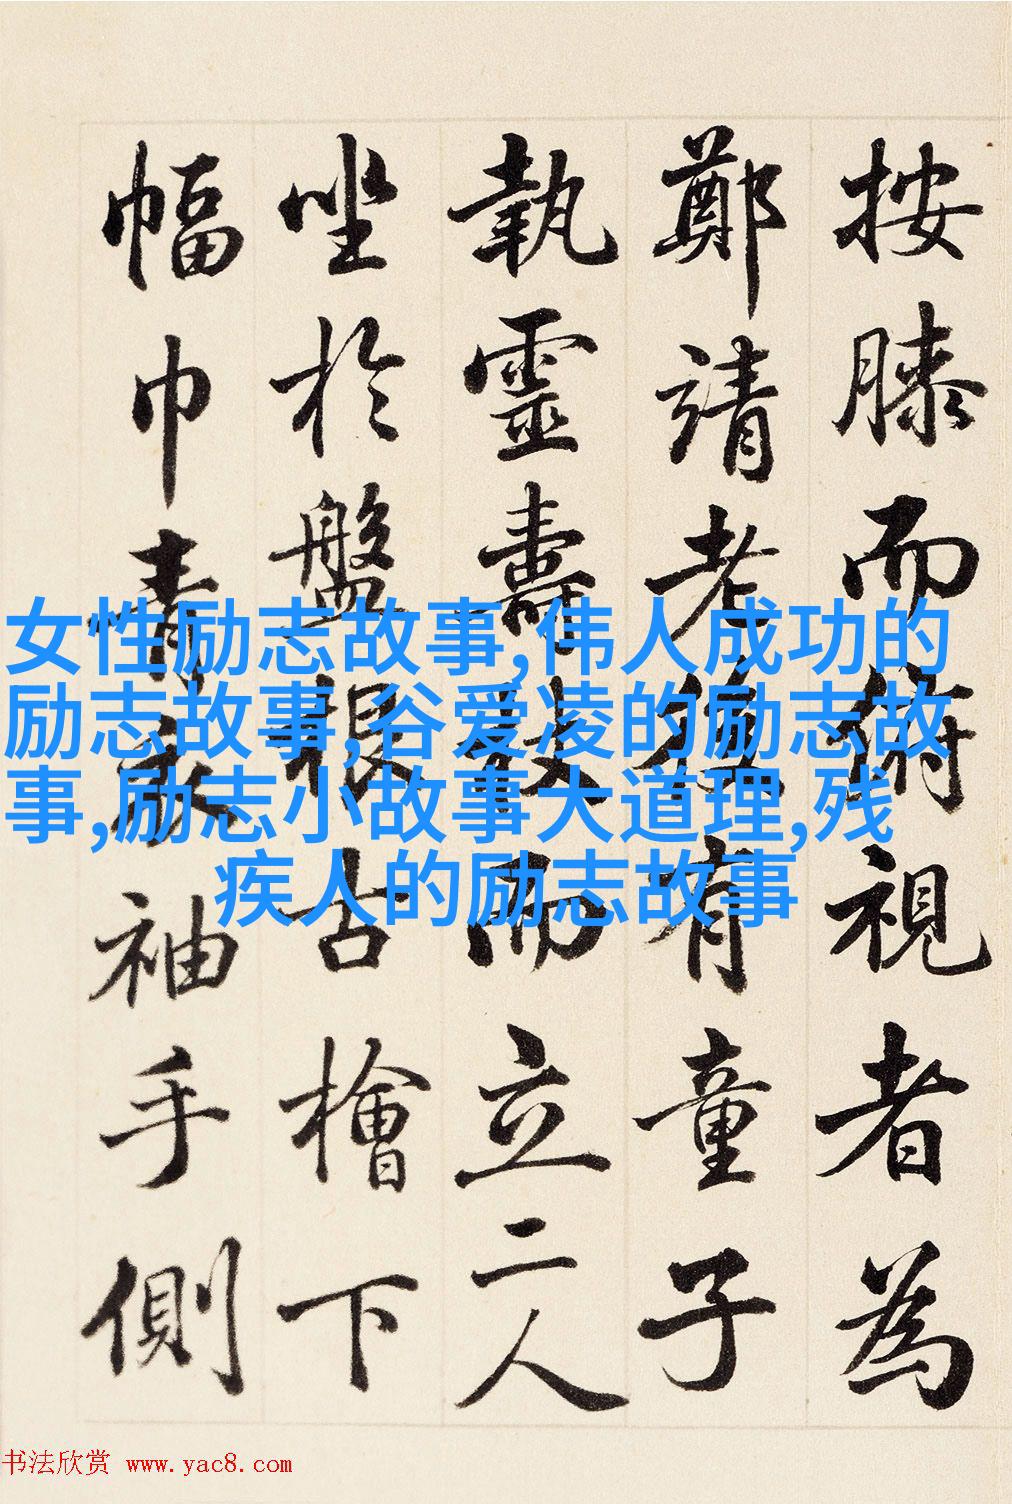 按膝而俯視者為
鄭靖老後有童子
執靈壽杖而立二人
坐於盤根古檜下
幅巾青衣袖手側
女性励志故事,伟人成功的
励志故事,谷爱凌的励志故
事,励志小故事大道理,残
疾人的励志故事
书法欣赏 www.yac8.com